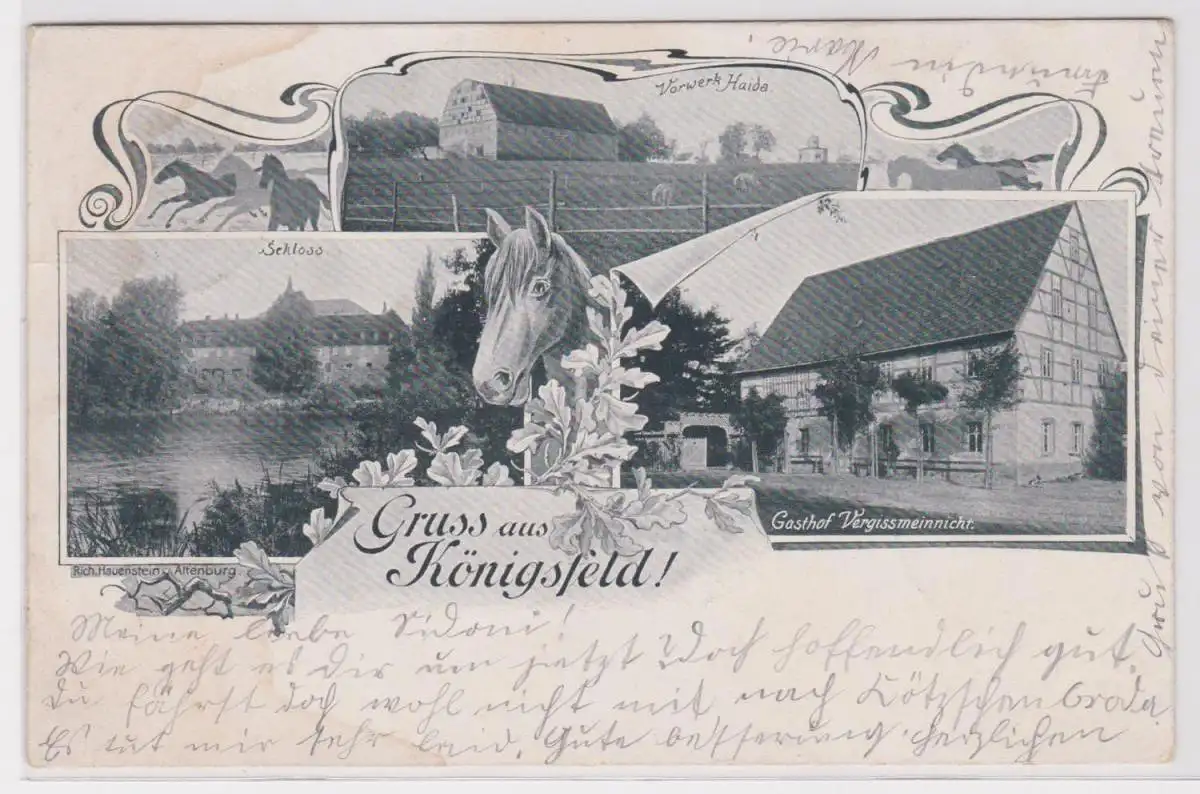 Vorwerk Haida.
Schloss
Gasthof Vergissmeinnicht.
Gruss aus
Königsfeld!
Rich. Hauenstein, Altenburg
Meine liebe Sidoni!
Wie geht es Dir um jetzt? Doch hoffendlich gut.
Du fährst doch wohl nicht mit nach Kötzschenbroda.
Es tut mir sehr leid. Gute besserung. herzlichen
Gruß von deiner treuen
Freundin Marie.